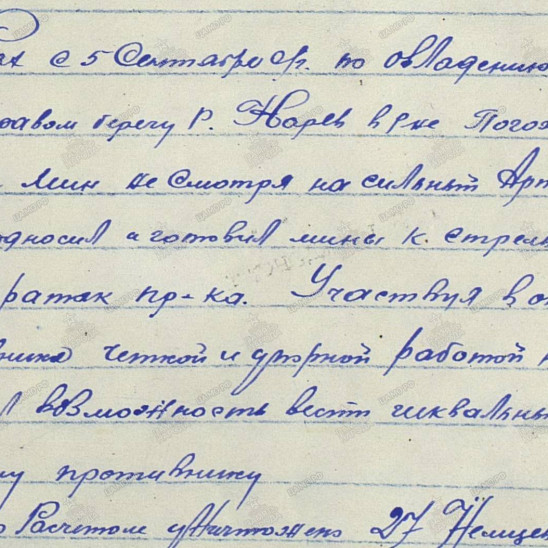 с 5 Сентября с/г. по овладению
правом берегу р. Нарев в р-не Погож
мин не смотря на сильный Арт
подносил и готовил мины к стрель
ратак пр-ка. Участвуя в о
вника четкой и упорной работой
л возможность вести шквальны
му противнику
Расчетом уничтожено 27 Немце